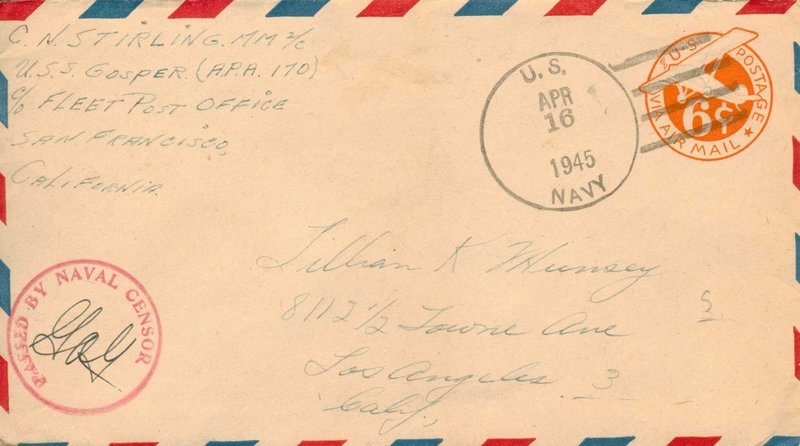 C. N. STIRLING. MM 2/C
U.S.S. GOSPER. (A.P.A. 170)
c/o FLEET POST OFFICE
SAN FRANCISCO,
CALIFORNIA.
U.S.
APR
16
1945
NAVY
U·S·POSTAGE
6¢
VIA AIR MAIL
Lillian K Munsey
8112 1/2 Towne Ave
Los Angeles 3
Calif,
PASSED BY NAVAL CENSOR